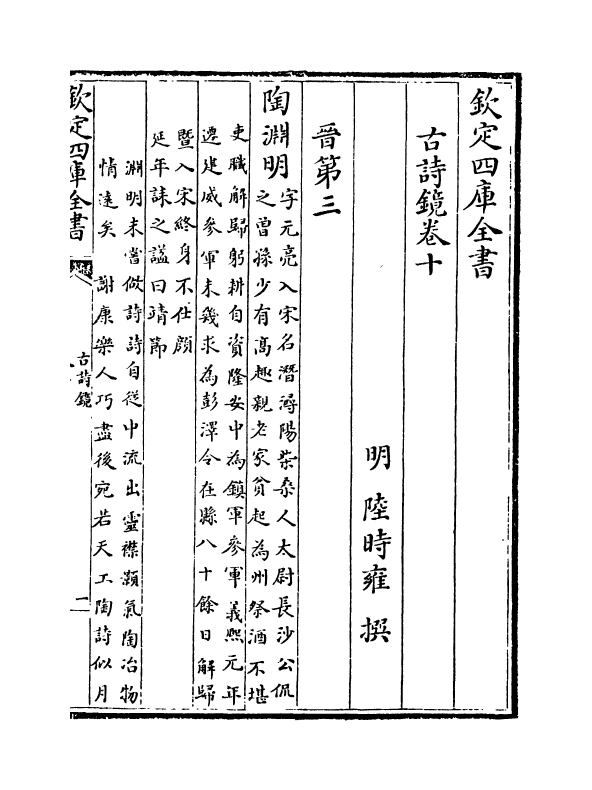 欽定四庫全書
古詩鏡卷十
明 陸時雍 撰
晉第三
陶淵明字元亮入宋名潛潯陽柴桑人太尉長沙公侃
之曾孫少有高趣親老家貧起為州祭酒不堪
吏職解歸躬耕自資隆安中為鎮軍參軍義熙元年
遷建威參軍未幾求為彭澤令在縣八十餘日解歸
暨入宋終身不仕顔
延年誄之謚曰靖節
淵明未嘗做詩詩自從中流出靈襟顥氣陶冶物
情遠矣 謝康樂人巧盡後宛若天工陶詩似月
欽定四庫全書
古詩鏡